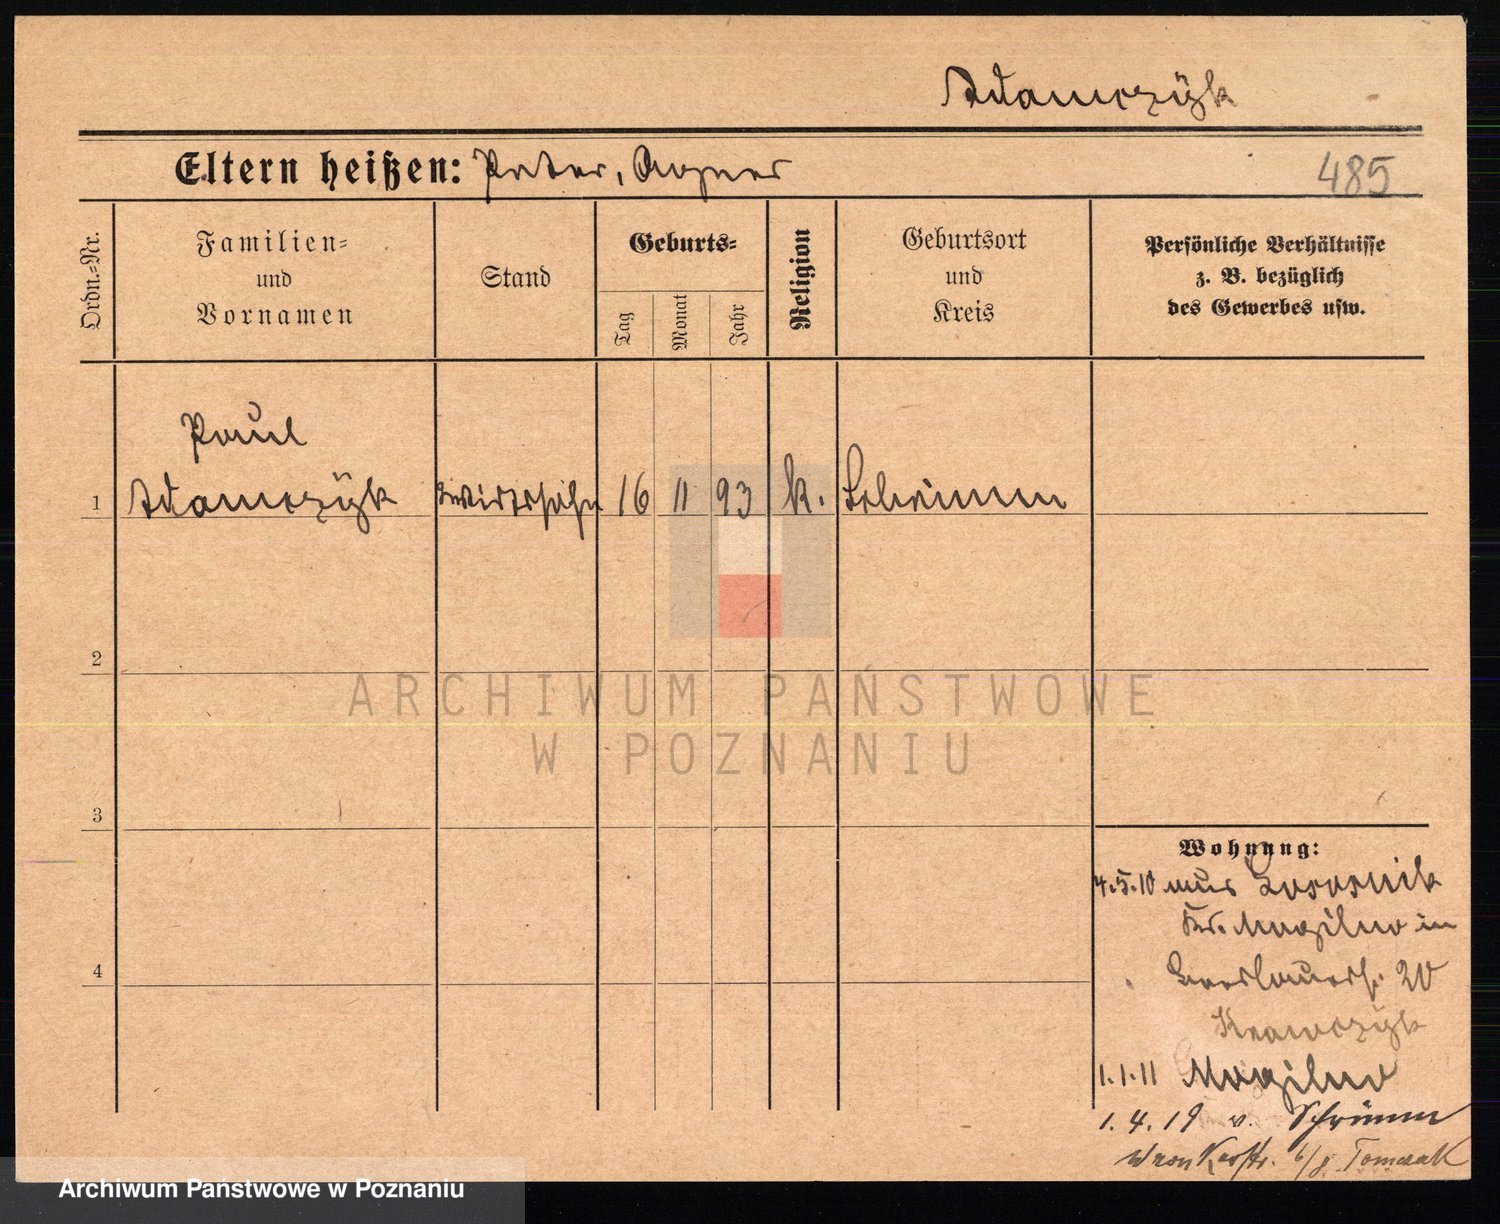 Adamczÿk
Eltern heißen: Peter, Agnes
485
Ordn.-Nr.
Familien-
und
Vornamen
Stand
Geburts-
Tag
Monat
Jahr
Religion
Geburtsort
und
Kreis
Persönliche Verhältnisse
z. B. bezüglich
des Gewerbes usw.
Paul
1 Adamczÿk 16 11 93 k. Schrimm
2
ARCHIWUM PAŃSTWOWE
W POZNANIU
3
Wohnung:
4.5.10 aus
Kr. Mogilno in
4
20
Krawczÿk
1.1.11 Mogilno
1.4.19 v. Schrimm
Tomczak
Archiwum Państwowe w Poznaniu